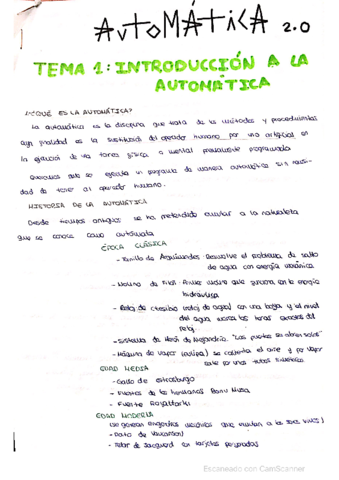 AUTOMÁTICA 2.0
TEMA 1: INTRODUCCIÓN A LA
AUTOMÁTICA
¿QUÉ ES LA AUTOMÁTICA?
La automática es la disciplina que trata de los métodos y procedimientos
cuya finalidad es la sustitución del operador humano por uno artificial en
la ejecución de una tarea física o mental previamente programada
Queremos que se ejecute un programa de manera automática sin necesi-
dad de tener al operador humano.
HISTORIA DE LA AUTOMÁTICA
Desde tiempos antiguos se ha pretendido emular a la naturaleza
que se conoce como autómata
ÉPOCA CLÁSICA
- Tornillo de Arquímedes Resuelve el problema de salto
de agua con energía mecánica
- Molino de Filón. Primer molino que funciona con la energía
hidráulica
- Reloj de Ctesibio (reloj de agua) con una boya y el nivel
del agua marca las horas exactas del
reloj
- Sistema de Herón de Alejandría. "Las puertas se abren solas"
- Máquina de vapor (eolípila) se calienta el aire y por vapor
sale por unos tubos
EDAD MEDIA
- Gallo de Estrasburgo
- Fuentes de los hermanos Banu Musa
- Fuente
EDAD MODERNA
(se generan engendros mecánicos que emulan a los seres vivos)
- Pato de Vaucanson
- Telar de Jacquard con tarjetas perforadas
Escaneado con CamScanner